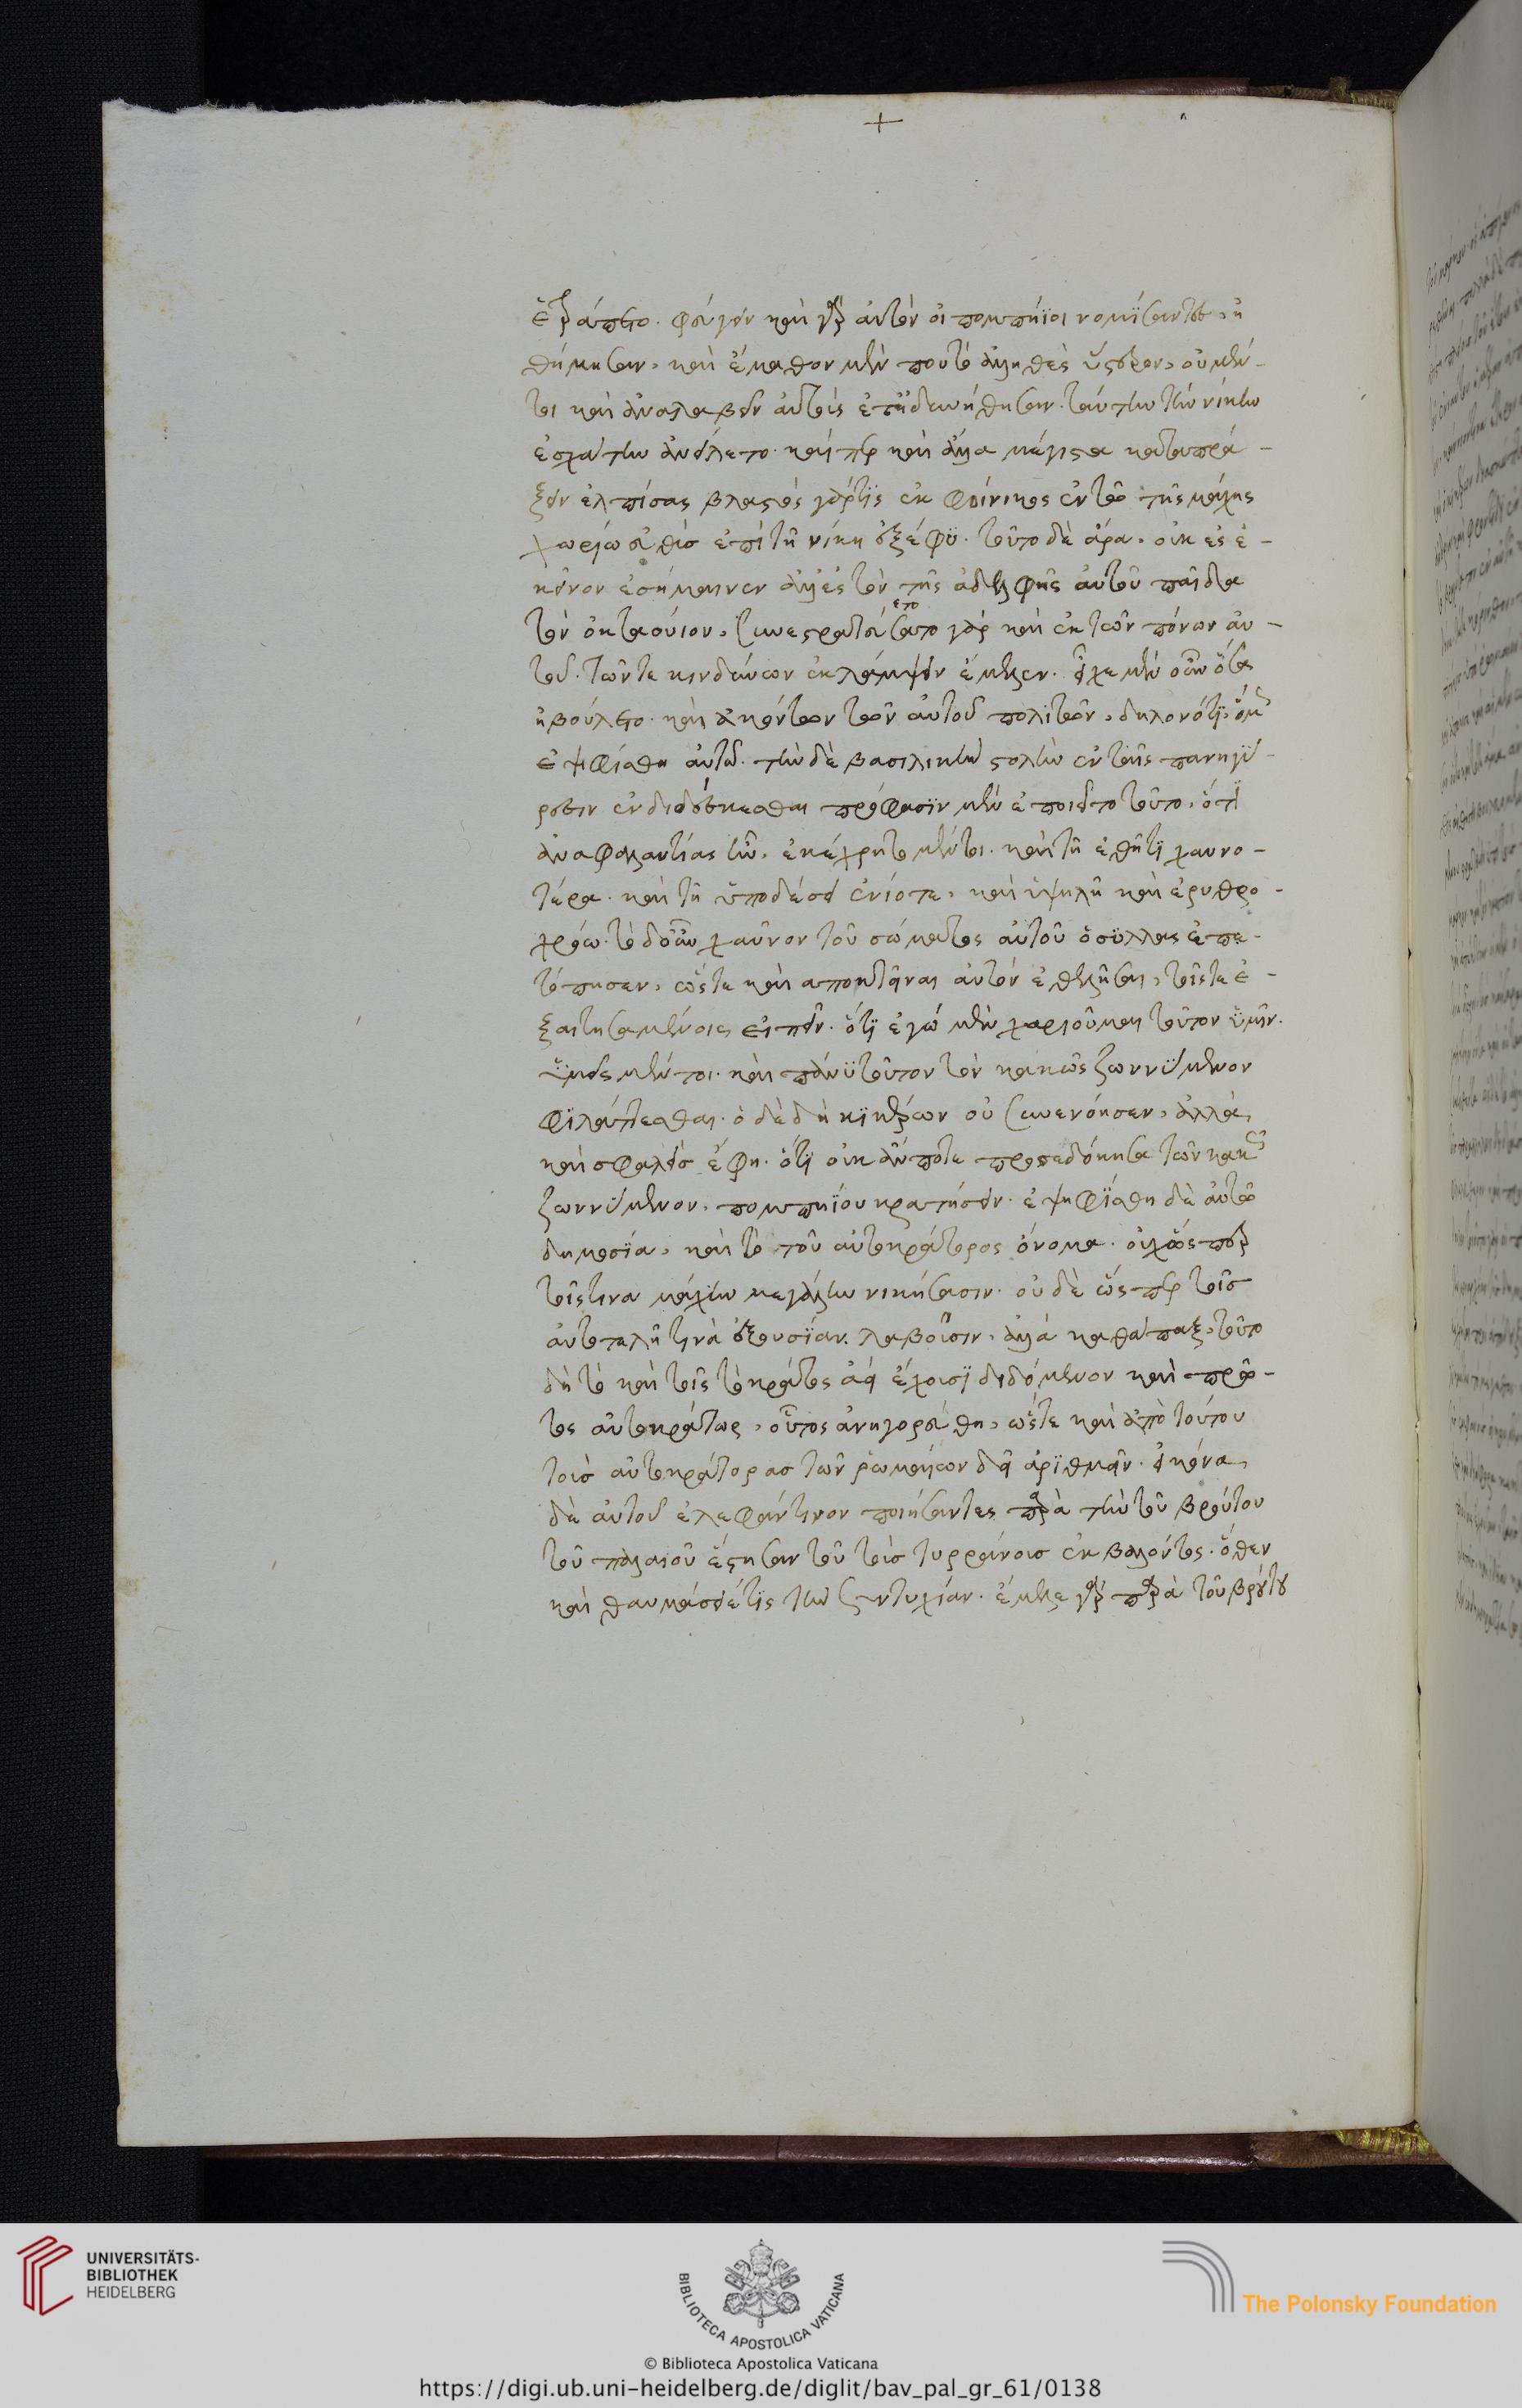 +
ἐτράπετο. φεύγειν καὶ γὰρ αὐτὸν οἱ πομπήϊοι νομίσαντες, ἡ
θήκησαν, καὶ ἔμαθον μὲν που τὸ ἀληθὲς ὕστερον, οὐ μέν-
τοι καὶ ἀναλαβεῖν αὐτοὺς ἐτι ἐδυνήθησαν. ταύτην τὴν νίκην
ἐσχάτην ἀνείλετο. καίπερ καὶ ἄλλα μέγιστα καταπρά-
ξειν ἐλπίσας βλαστὸς γάρ τις ἐκ φοίνικος ἐν τῶ τῆς μάχης
χωρίω εὐθὺς ἐπὶ τῆ νίκη ἐξέφυ. τοῦτο δὲ ἄρα, οὐκ ἐς ἐ-
κεῖνον ἐσήμαινεν ἀλλ' ἐς τὸν τῆς ἀδελφῆς αὐτοῦ παῖδα
τὸν ὀκταούιον, συνεστρατεύετο γὰρ καὶ ἐκ τῶν πόνων αὐ-
τοῦ. τῶν τε κινδύνων ἐκλάμψειν ἔμελλεν. εἶχε μὲν οὖν ὅσα
ἠβούλετο. καὶ ἁπάντων τῶν αὐτοῦ πολιτῶν, δηλονότι,
ἐψηφίσθη αὐτῶ. τὴν δὲ βασιλικὴν στολὴν ἐν ταῖς πανηγύ-
ρεσιν ἐνδιδύσκεσθαι πρόφασιν μὲν ἐποιεῖτο τοῦτο, ὅτι
ἀναφαλαντίας ἦν, ἐκέχρητο μέντοι. καὶ τῆ ἐσθῆτι χαυνο-
τέρα. καὶ τῆ ὑποδέσει ἐνίοτε, καὶ ὑψηλῆ καὶ ἐρυθρο-
χρόω. τὸ δ' οὖν χαῦνον τοῦ σώματος αὐτοῦ ὁ σύλλας ἐπε-
τόπησεν, ὥστε καὶ αποκτεῖναι αὐτὸν ἐθελῆσαι, τοῖς τε ἐ-
ξαιτησαμένοις εἰπεῖν. ὅτι ἐγὼ μὲν χαριοῦμαι τοῦτον ὑμῖν.
ὑμεῖς μέντοι. καὶ πάνυ τοῦτον τὸν κακῶς ζωννύμενον
φυλάττεσθαι. ὁ δὲ δὴ κικέρων οὐ συνενόησεν, ἀλλὰ
καὶ σφαλεὶς ἔφη. ὅτι οὐκ ἄν ποτε προσεδόκησα τῶν κακῶ
ζωννύμενον, πομπηίου κρατήσειν. ἐψηφίσθη δὲ αὐτῶ
δημοσία, καὶ τὸ τοῦ αὐτοκράτορος ὄνομα. οὐχ ὥσπερ
τοῖς τινα μάχην μεγάλην νικήσασιν. οὐδὲ ὥσπερ τοῖς
αὐτοτελῆ τινὰ ἐξουσίαν λαβοῦσιν, ἀλλὰ καθάπαξ, τοῦτο
δὴ τὸ καὶ τοῖς τὸ κράτος ἀεὶ ἔχουσι διδόμενον καὶ πρῶ-
τος αὐτοκράτωρ, οὗτος ἀνηγορεύθη, ὥστε καὶ ἀπὸ τούτου
τοὺς αὐτοκράτορας τῶν ῥωμαίων δεῖ ἀριθμεῖν. εἰκόνα
δὲ αὐτοῦ ἐλεφάντινον ποιήσαντες παρὰ τὴν τοῦ βρούτου
τοῦ παλαιοῦ ἔστησαν τοῦ τοὺς τυρράνους ἐκβαλόντος. ὅθεν
καὶ θαυμάσειέ τις τὴν συντυχίαν. ἔμελλε γὰρ παρὰ τοῦ βρούτου
UNIVERSITÄTS-
BIBLIOTHEK
HEIDELBERG
BIBLIOTECA APOSTOLICA VATICANA
The Polonsky Foundation
© Biblioteca Apostolica Vaticana
https://digi.ub.uni-heidelberg.de/diglit/bav_pal_gr_61/0138